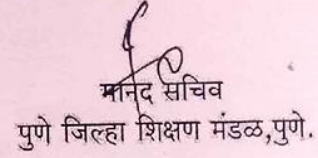 मानद सचिव
पुणे जिल्हा शिक्षण मंडळ,पुणे.